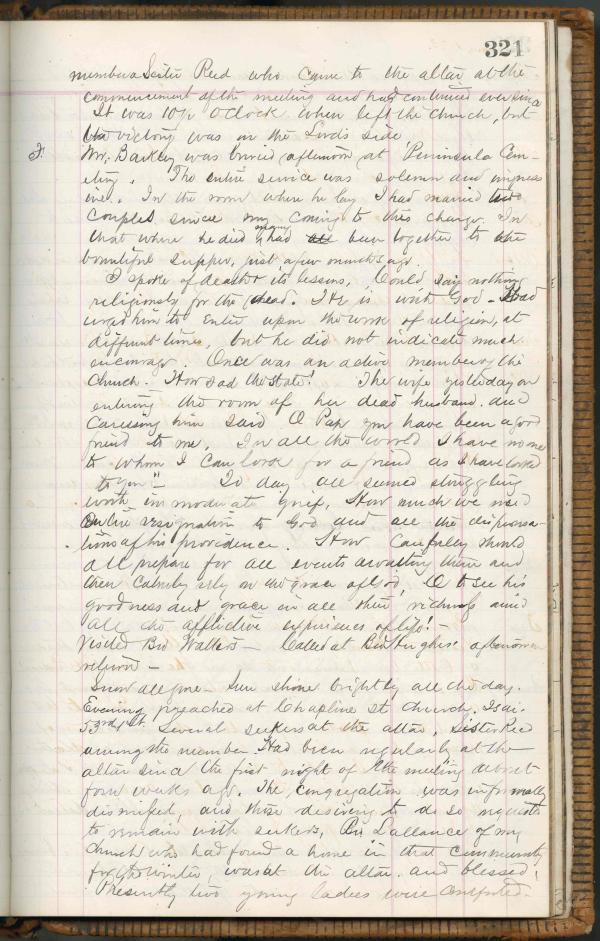 321
members Sister Reed who came to the altar at the
commencement of the meeting and had continued ever since
It was 10½ O'clock when left the Church, but
the victory was on the Lord's side
F. Mr. Barkley was buried afternoon at Peninsula Cem-
etery. The entire service was solemn and impress
ive. In the room where he lay I had married two
couples since my coming to this charge. In
that where he died many had all been together to the
bountiful supper, just a few months ago.
I spoke of death & its lessons. Could say nothing
religiously for the dead. He is with God. Had
urged him to enter upon the work of religion, at
different times, but he did not indicate much
encourage. Once was an active member of the
Church. How sad the state! The wife yesterday on
entering the room of her dead husband and
caressing him said O Pap you have been a good
friend to me. In all the world I have no one
to whom I can look for a friend as I have looked
to you" - To day all seemed struggling
with immoderate grief. How much we need
entire resignation to God and all the dispensa-
tions of his providence. How carefully should
all prepare for all events awaiting them and
then calmly rely on the grace of God, O to see his
goodness and grace in all their richness amid
all the afflictive experiences of life! -
Visited Bro Walters - Called at Bro Hughes' afternoon
return -
Snow all gone - Sun shone brightly all the day.
Evening preached at Chapline St Church, Isai.
53rd 1st. Several seekers at the altar, Sister Reed
among the number. Had been regularly at the
altar since the first night of the meeting about
four weeks ago. The congregation was informally
dismissed, and those desiring to do so requested
to remain with seekers, Bro Lallance of my
Church who had found a home in that community
for the winter, was at the altar and blessed,
Presently two young ladies were converted.